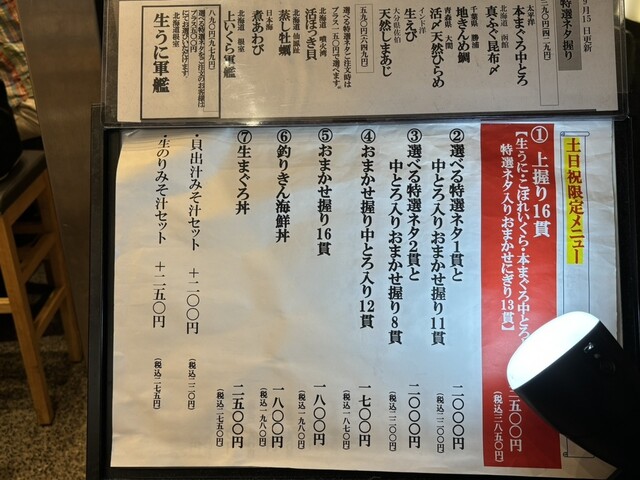 9月15日更新
特選ネタ握り
三九〇円(四二九円)
太平洋
本まぐろ中とろ
北海道 函館
真ふぐ昆布〆
千葉県 勝浦
地きんめ鯛
青森県 大間
活〆天然ひらめ
インド洋
生えび
大分県佐伯
天然しまあじ
五九〇円(六四九円)
選べる特選ネタをご注文時は
プラス一五〇円で選べます。
北海道 噴火湾
活ほっき貝
北海道 仙鳳趾
蒸し牡蠣
日本海
煮あわび
北海道 根室
上いくら軍艦
八九〇円(九七九円)
選べる特選ネタをご注文のお客様は
にてお選びいただけます。
北海道 根室
生うに軍艦
土日祝限定メニュー
① 上握り16貫
【生うに・こぼれいくら・本まぐろ中とろ
特選ネタ入りおまかせにぎり13貫】
五〇〇円
(税込三八五〇円)
② 選べる特選ネタ1貫と
中とろ入りおまかせ握り11貫
二〇〇〇円
(税込二二〇〇円)
③ 選べる特選ネタ2貫と
中とろ入りおまかせ握り8貫
二〇〇〇円
(税込二二〇〇円)
④ おまかせ握り中とろ入り12貫
一七〇〇円
(税込一八七〇円)
⑤ おまかせ握り16貫
一八〇〇円
(税込一九八〇円)
⑥ 釣りきん海鮮丼
一八〇〇円
(税込一九八〇円)
⑦ 生まぐろ丼
二五〇〇円
(税込二七五〇円)
・貝出汁みそ汁セット +二〇〇円
(税込二二〇円)
・生のりみそ汁セット +二五〇円
(税込二七五円)